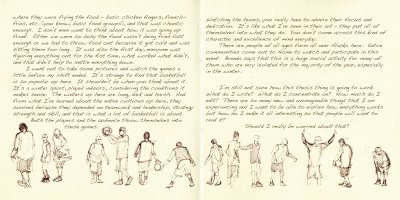 where they were frying the food - basic chicken fingers, french-
fries, etc. (your basic, basic food groups), and that was chaotic
enough. I don't even want to think about how it was going up
front. Either we were so busy the food wasn't being fried fast
enough or we had to throw food out because it got cold and was
sitting there too long. It was also the first day, everyone was
figuring everything out for the first time, what worked what didn't,
and that didn't help to settle everything down.
I went out to take some pictures and watch the games a
little before my shift ended. It's strange to find that basketball
is so popular up here. It shouldn't be when you think about it.
It's a winter sport, played indoors; considering the conditions it
makes sense. The winters up here are long, dark and harsh. And
from what I've learned about the native cultures up here, they
survived because they depended on teamwork and leadership, strategy
strength and skill, and that is what a lot of basketball is about.
Both the players and the audience throws themselves into
these games.
Watching the teams, you really have to admire their focus and
dedication. It's like what I've seen in their art - they put all of
themselves into what they do. You don't come across this kind of
character and excellence of mind everyday.
There are people of all ages from all over Alaska here. Entire
communities come out to Alaska to watch and participate in this
event. Brenda says that this is a huge social activity for many of
them who are very isolated for the majority of the year, especially
in the winter.
I'm still not sure how this thesis thing is going to work.
What do I write? What do I concentrate on? How much do I
edit? There are so many new and unimaginable things that I am
experiencing and I want to be able to explain how everything works
but how do I make it all interesting so that people will want to
read it?
Should I really be worried about that?